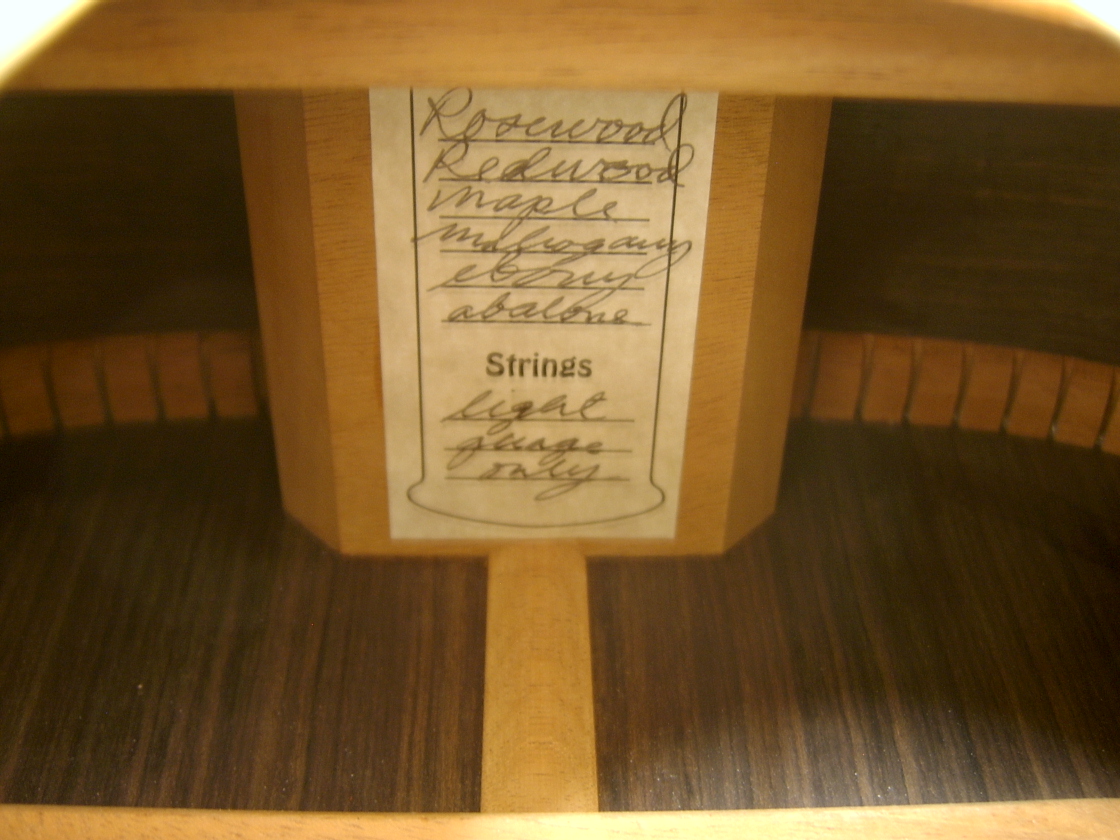 Rosewood
Redwood
Maple
mahogany
ebony
abalone
Strings
light
guage
only